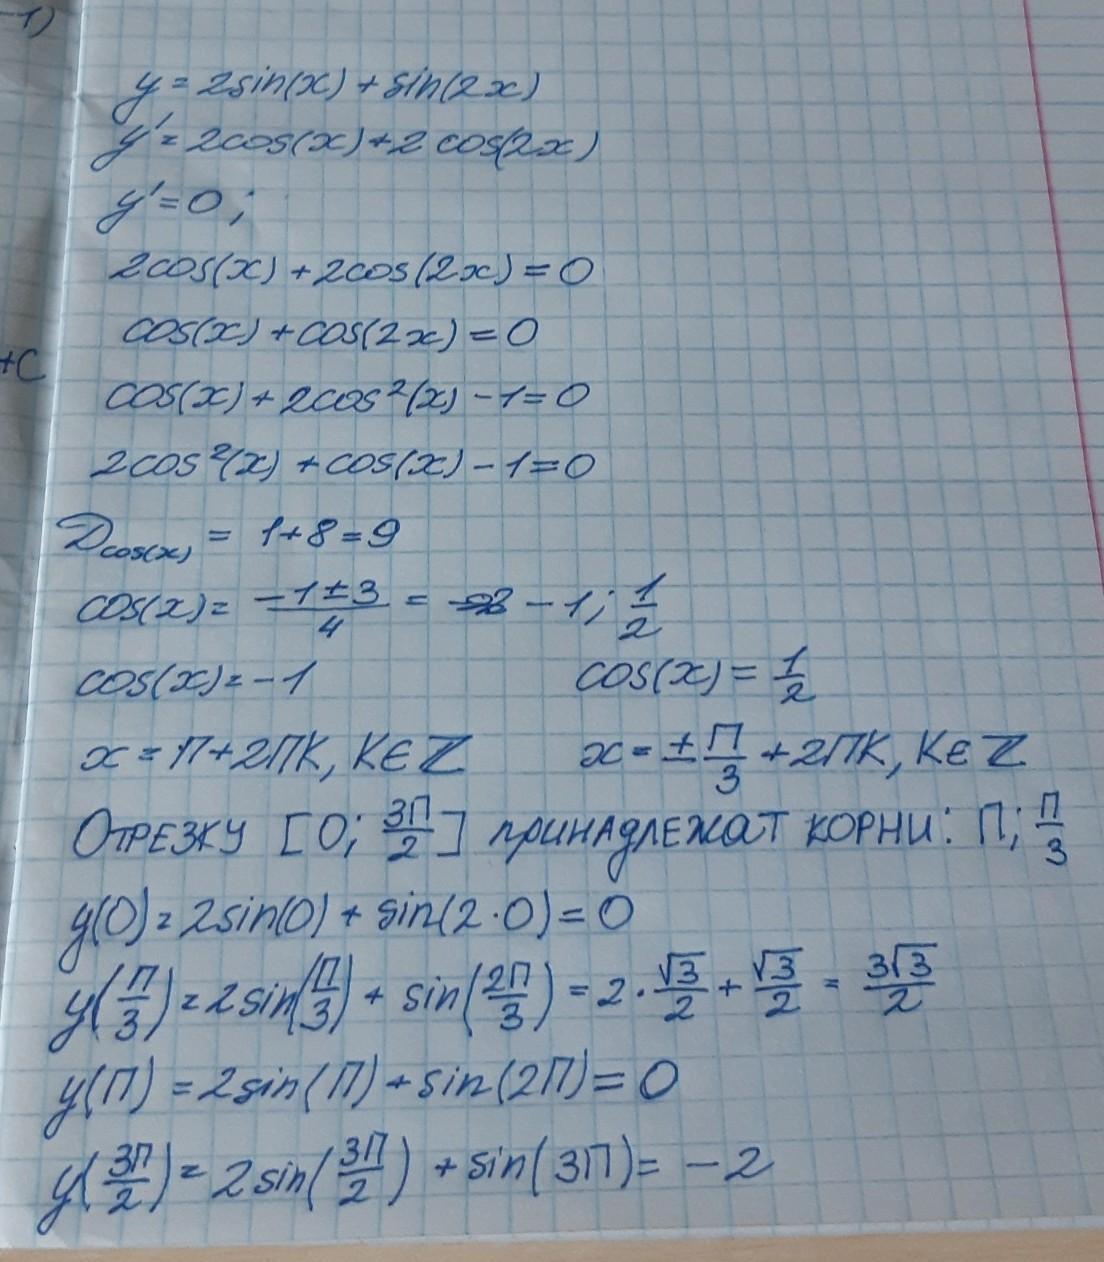 -1)
y = 2sin(x) + sin(2x)
y' = 2cos(x) + 2cos(2x)
y' = 0;
2cos(x) + 2cos(2x) = 0
cos(x) + cos(2x) = 0
+C
cos(x) + 2cos²(x) - 1 = 0
2cos²(x) + cos(x) - 1 = 0
D_cos(x) = 1 + 8 = 9
cos(x) = (-1 ± 3)/4 = -1; 1/2
cos(x) = -1 cos(x) = 1/2
x = П + 2ПК, К ∈ Z x = ± П/3 + 2ПК, К ∈ Z
Отрезку [0; 3П/2] принадлежат корни: П; П/3
y(0) = 2sin(0) + sin(2·0) = 0
y(П/3) = 2sin(П/3) + sin(2П/3) = 2 · √3/2 + √3/2 = 3√3/2
y(П) = 2sin(П) + sin(2П) = 0
y(3П/2) = 2sin(3П/2) + sin(3П) = -2